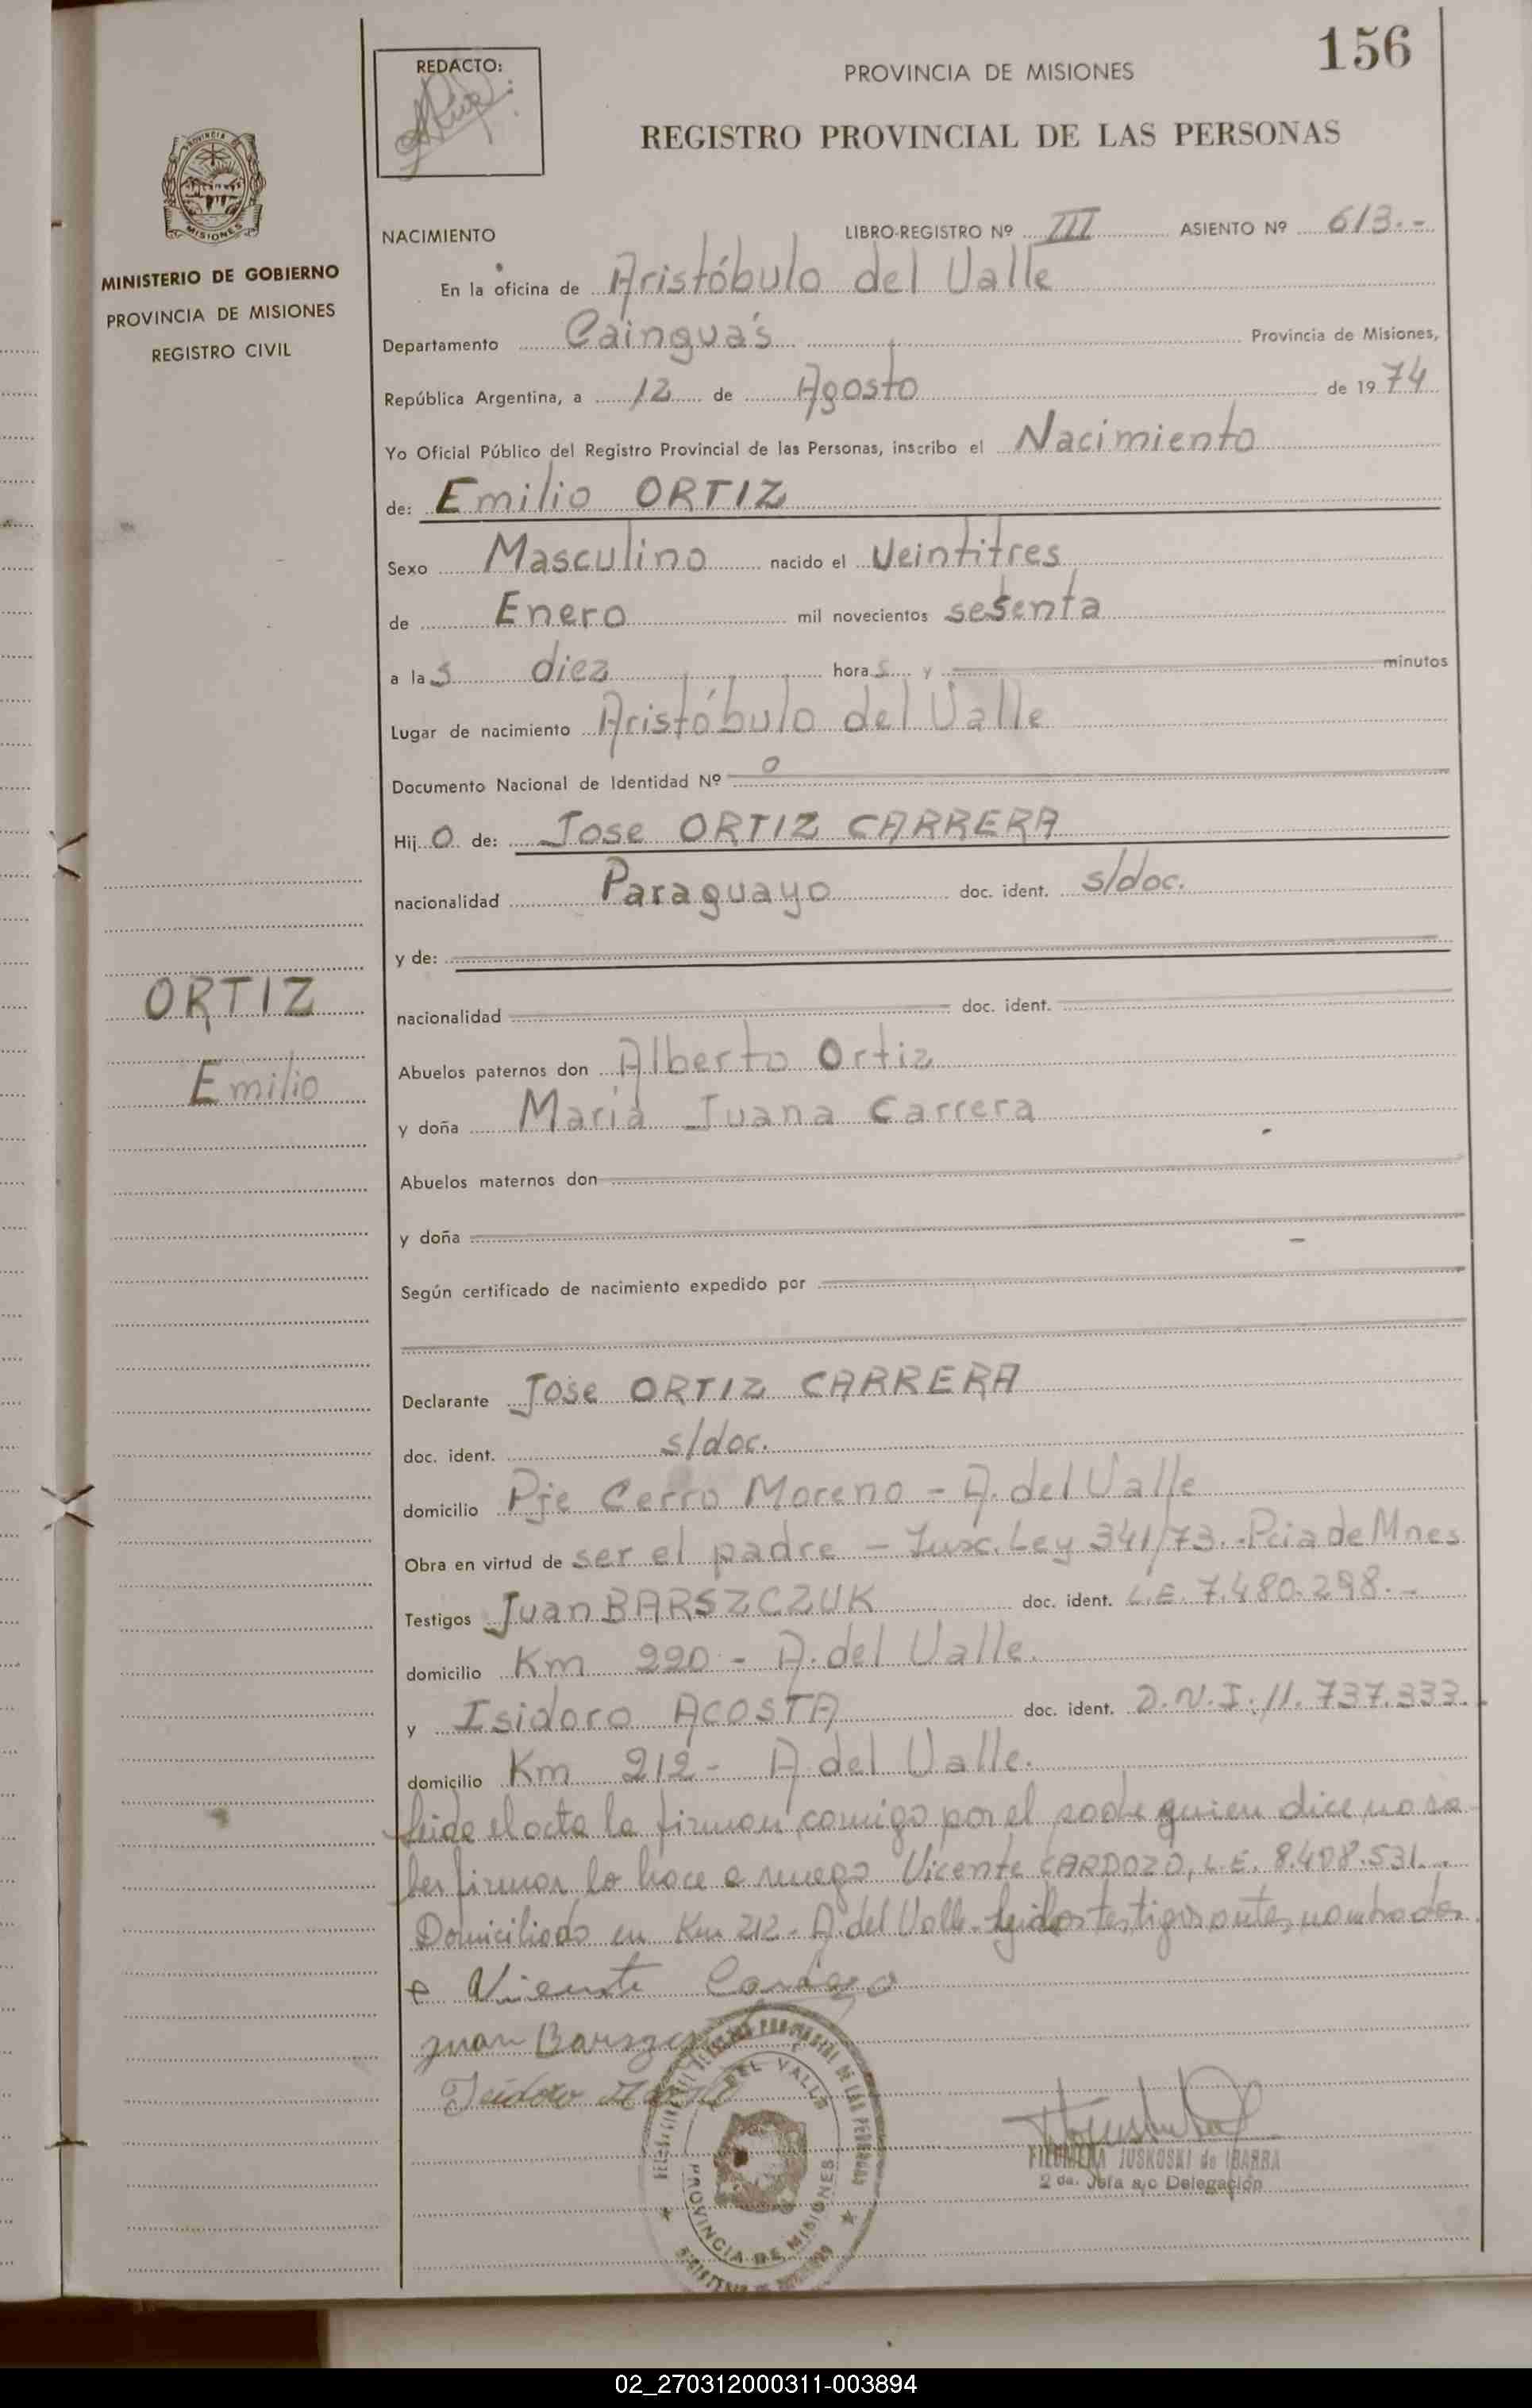 156
REDACTO:
PROVINCIA DE MISIONES
REGISTRO PROVINCIAL DE LAS PERSONAS
PROVINCIA
MISIONES
MINISTERIO DE GOBIERNO
PROVINCIA DE MISIONES
REGISTRO CIVIL
NACIMIENTO LIBRO-REGISTRO Nº III ASIENTO Nº 613.-
En la oficina de Aristóbulo del Valle
Departamento Cainguás Provincia de Misiones,
República Argentina, a 12 de Agosto de 1974
Yo Oficial Público del Registro Provincial de las Personas, inscribo el Nacimiento
de: Emilio ORTIZ
Sexo Masculino nacido el Veintitres
de Enero mil novecientos sesenta
a las diez horas y minutos
Lugar de nacimiento Aristóbulo del Valle
Documento Nacional de Identidad Nº
Hijo de: Jose ORTIZ CARRERA
nacionalidad Paraguayo doc. ident. s/doc.
y de:
nacionalidad doc. ident.
ORTIZ
Emilio
Abuelos paternos don Alberto Ortiz
y doña Maria Juana Carrera
Abuelos maternos don
y doña
Según certificado de nacimiento expedido por
Declarante Jose ORTIZ CARRERA
doc. ident. s/doc.
domicilio Pje Cerro Moreno - A. del Valle
Obra en virtud de ser el padre - Ley 341/73.-Pcia de Mnes
Testigos Juan BARSZCZUK doc. ident. L.E. 7.480.298.-
domicilio Km 220 - A. del Valle.
y Isidoro ACOSTA doc. ident. D.N.I. 11.737.333.
domicilio Km 212 - A. del Valle.
leida el acta la firman comigo por el padre quien dice no sa-
ber firmar lo hace a ruego Vicente CARDOZO, L.E. 8.408.531.
Domiciliado en Km 212 - A. del Valle testigos antes nombrados
Vicente Cardozo
Juan
Isidoro
DEL VALLE
PROVINCIA DE MISIONES
FILOMENA JUSKOSKI de IBARRA
2 da. Jefa a/c Delegación
02_270312000311-003894